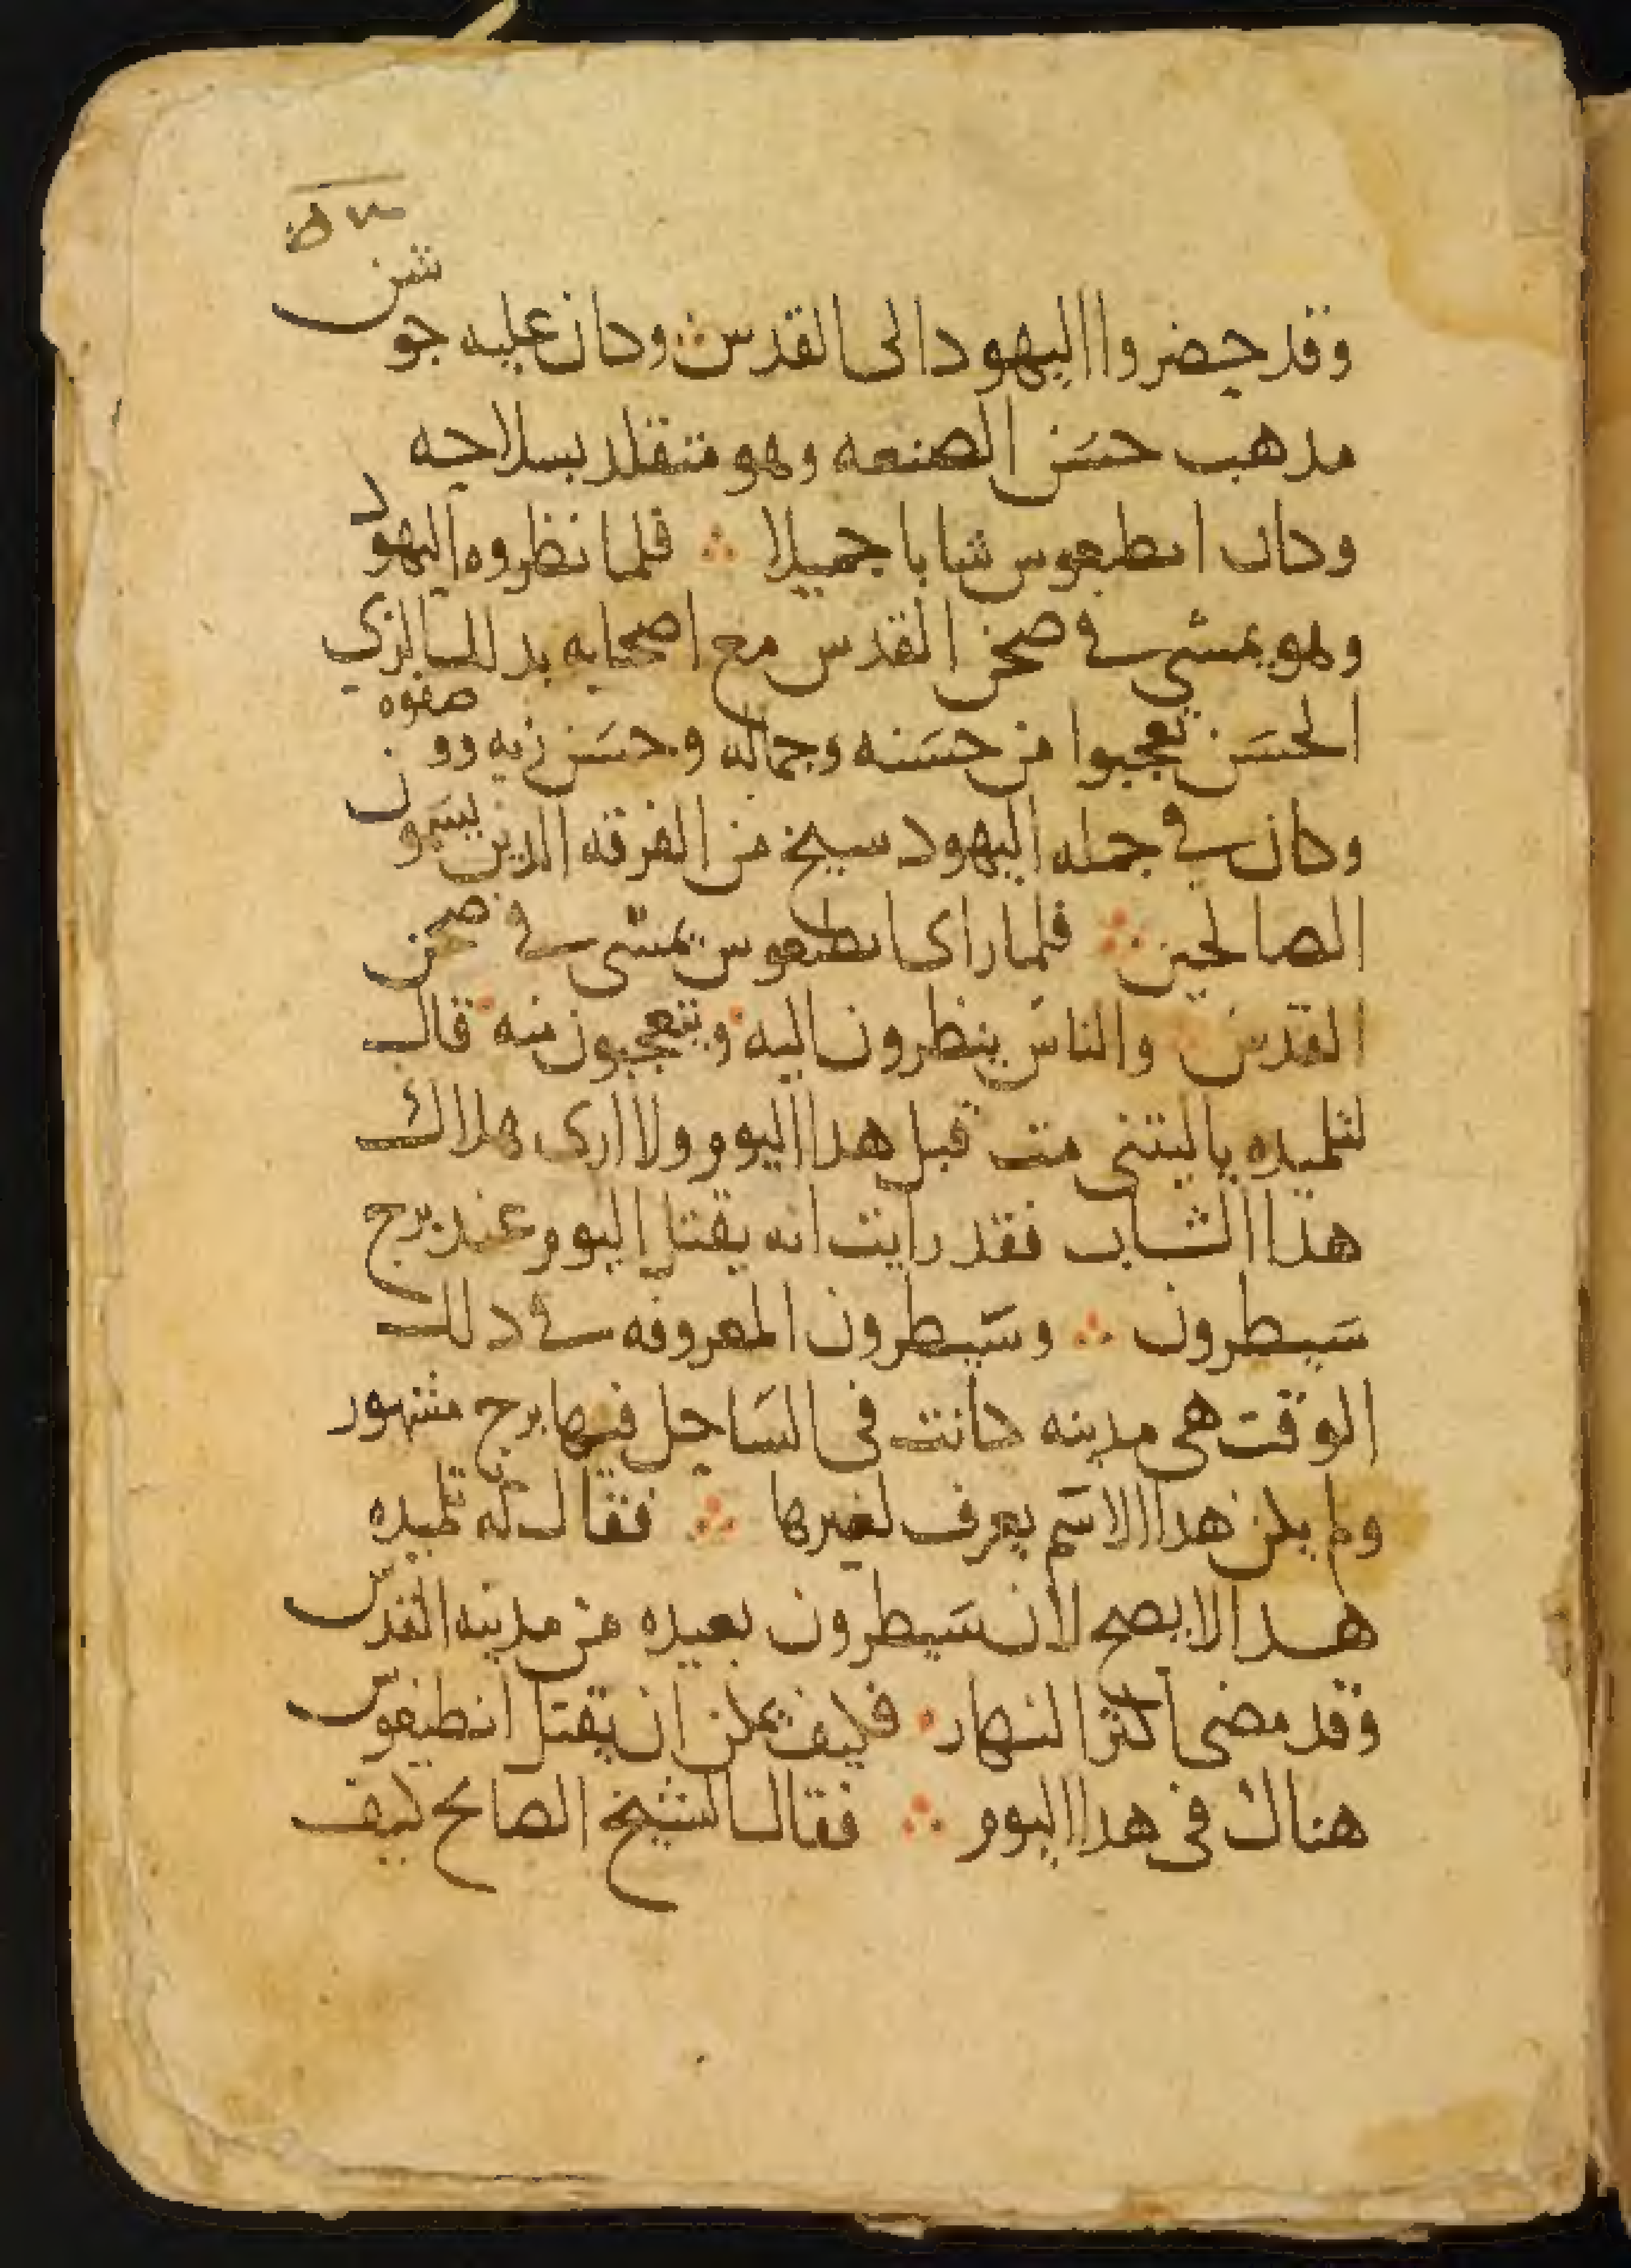 وقد حضروا اليهود الى القدس ∴ وكان عليه جوشن
مدهب حسن الصنعه وهو متقلد بسلاحه
وكان انطيغوس شابا جميلا ∴ فلما نظروه اليهود
وهو يمشي في صحن القدس مع اصحابه بدلك الزي
الحسن تعجبوا من حسنه وجماله وحسن زيه ووصفوه
وكان في جمله اليهود شيخ من الفرقه الدين يسمون
الصالحين ∴ فلما راى انطيغوس يمشي في صحن
القدس ∴ والناس ينظرون اليه ويتعجبون منه قال
لتلميده ياليتني مت قبل هدا اليوم ولا ارى هلاك
هدا الشاب فقد رايت انه يقتل اليوم عند برج
سيطرون ∴ وسيطرون المعروفه في دلك
الوقت هي مدينه كانت في الساحل فيها برج مشهور
ولم يكن هدا الاسم يعرف لغيرها ∴ فقال له تلميده
هدا لا يصح لان سيطرون بعيده من مدينه القدس
وقد مضى اكثر النهار فكيف يمكن ان يقتل انطيغوس
هناك في هدا اليوم ∴ فقال الشيخ الصالح كيف